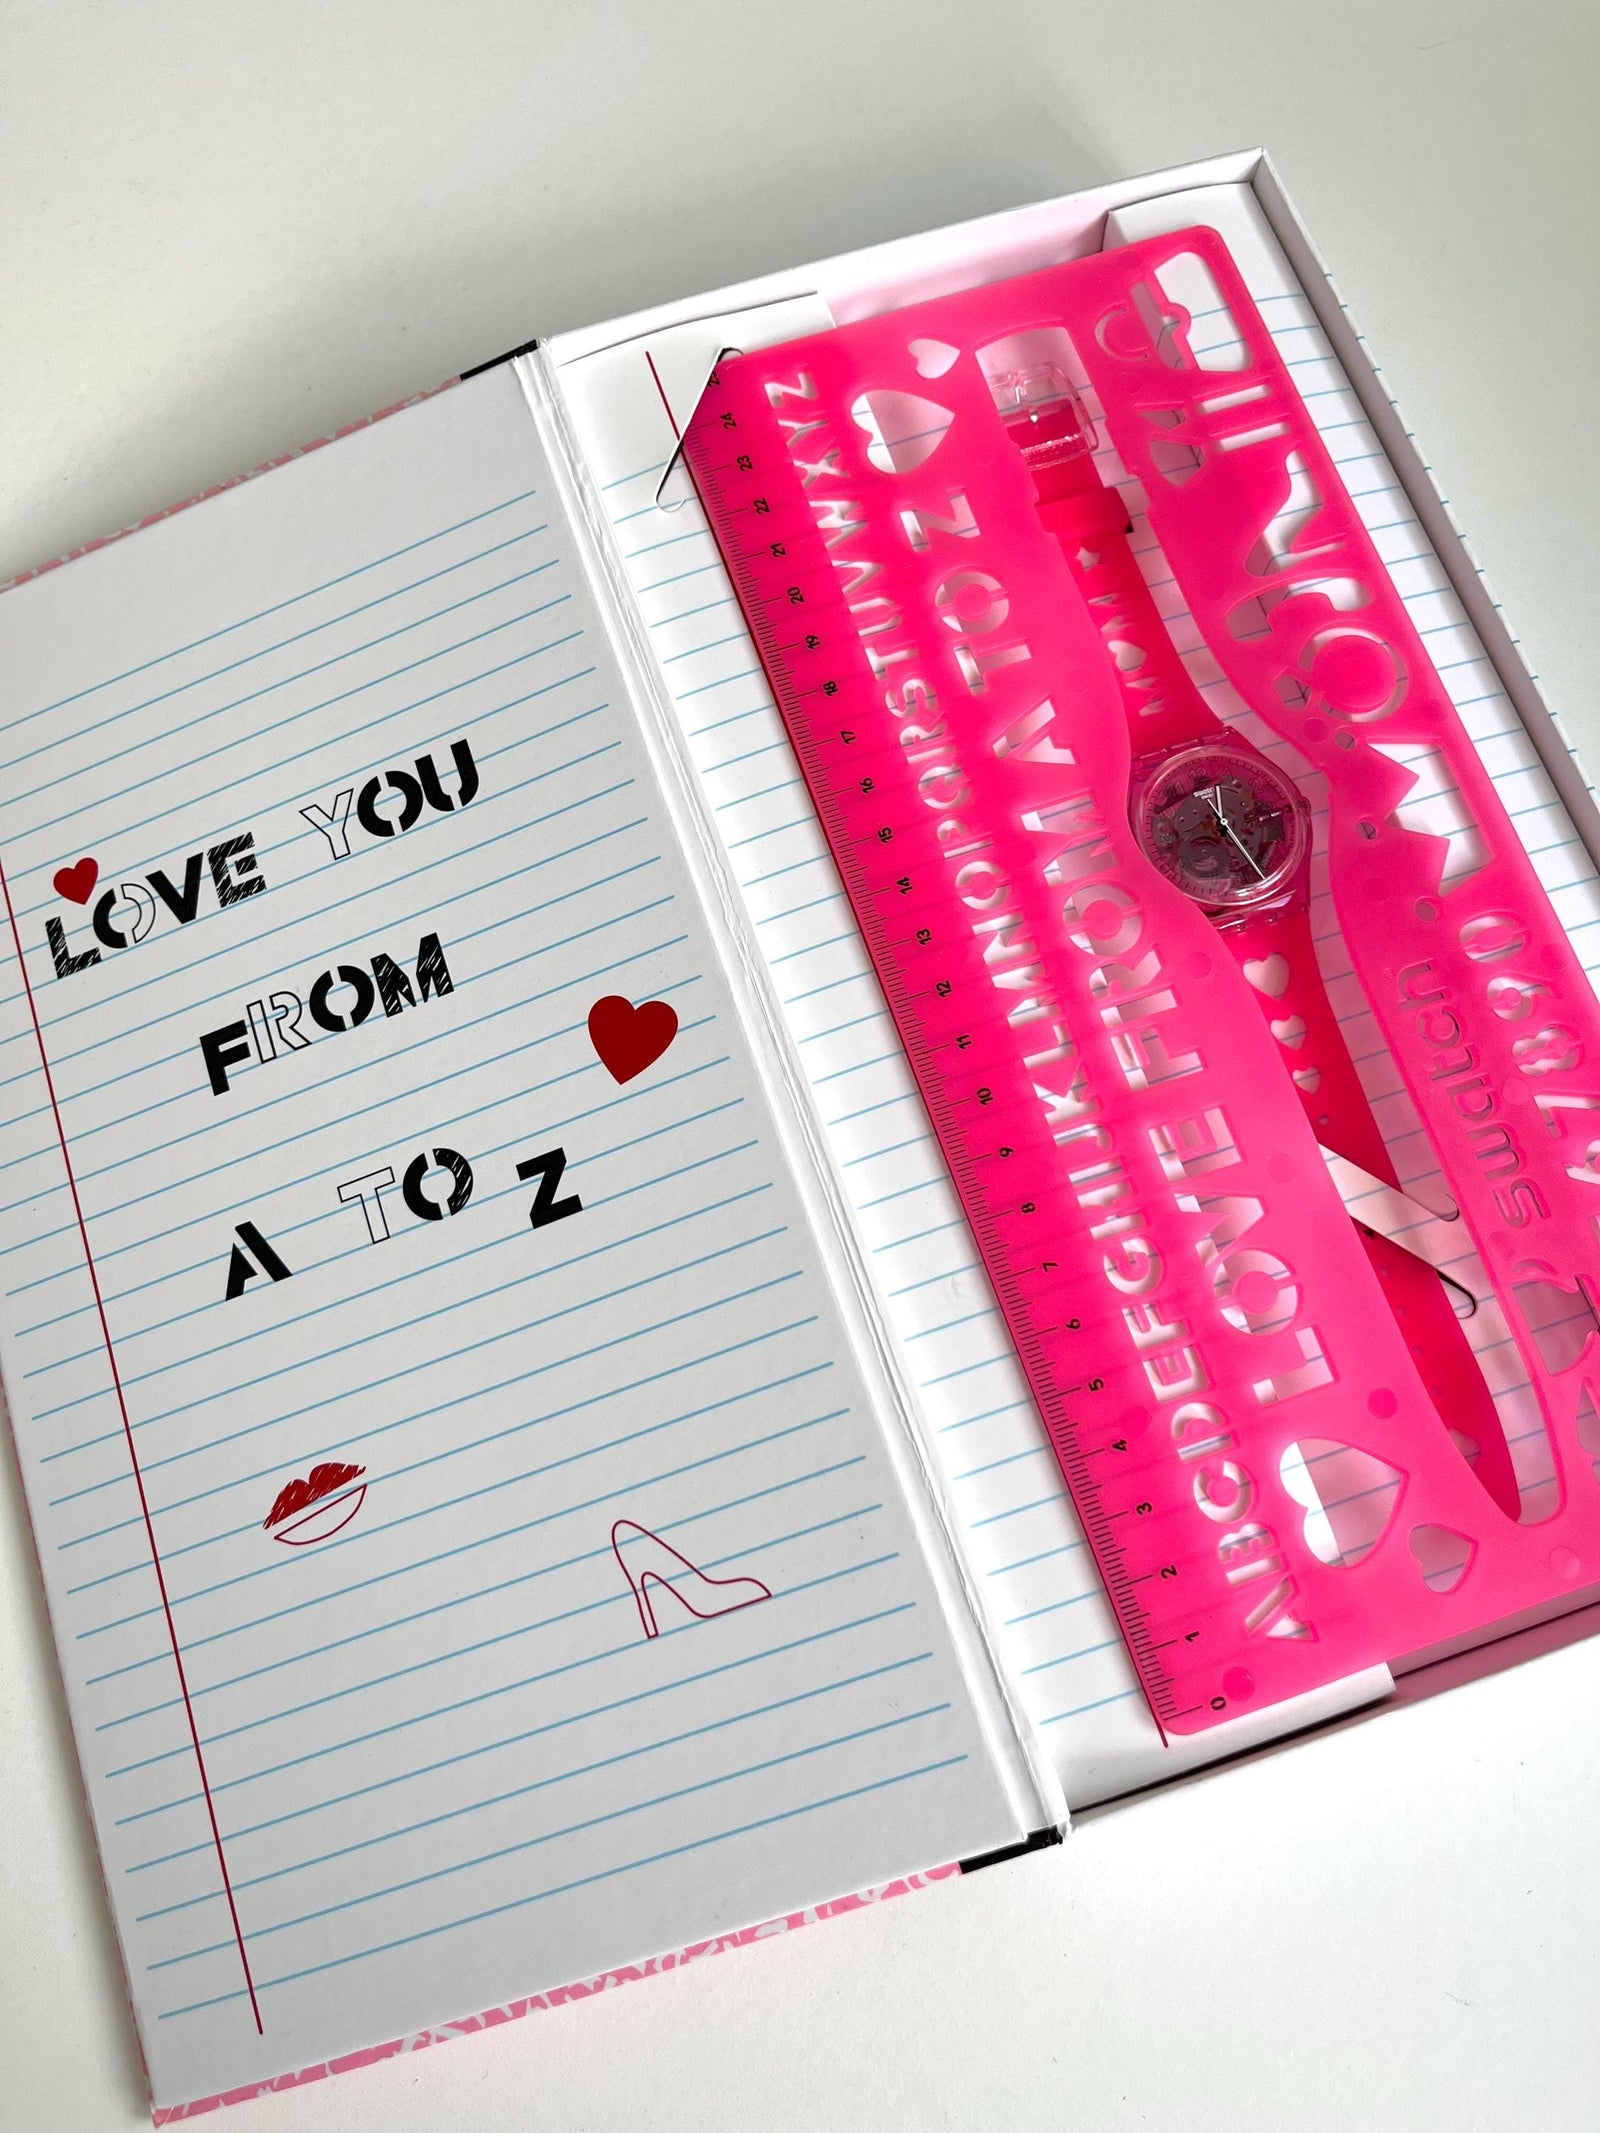 LOVE YOU
FROM
A TO Z
0 1 2 3 4 5 6 7 8 9 10 11 12 13 14 15 16 17 18 19 20 21 22 23 24
ABCDEFGHIJKLMNOPQRSTUVWXYZ
LOVE FROM A TO Z
MOM
swatch
swatch
7890